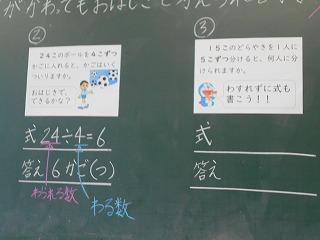 がかわってもおはじきで考えられ
②
24このボールを4こずつ
かごに入れると、かごはいく
ついりますか。
おはじきで、
できるかな？
式 24÷4=6
答え 6かご(つ)
わられる数
わる数
③
15このどらやきを1人に
5こずつ分けると、何人に分
けられますか。
わすれずに式も
書こう！！
式
答え